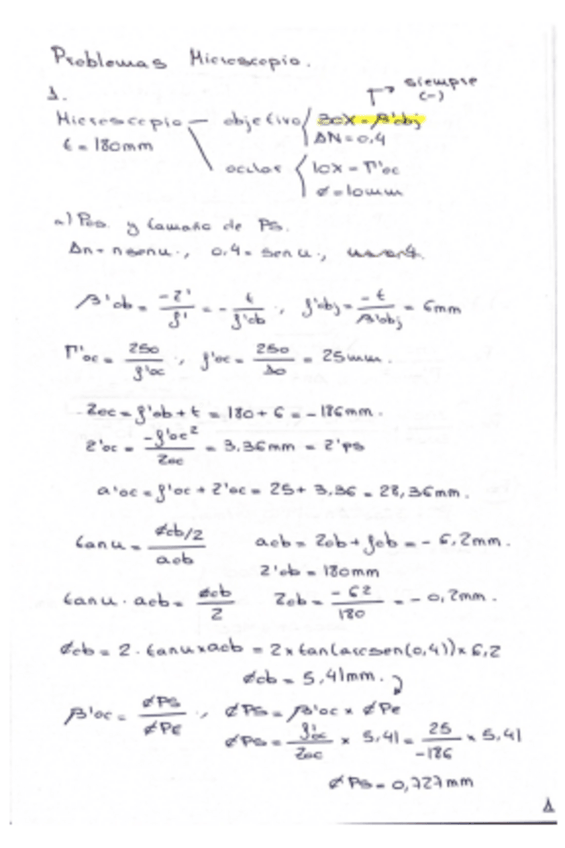 Problemas Microscopio.
siempre
(-)
1.
Microscopio — objetivo { 30X = β'obj
t = 180mm
ΔN = 0,4
ocular { 10X = Γ'oc
ø = 10mm
a) Pos. y tamaño de PS.
Δn = n senu ∴ 0.4 = sen u ∴
β'ob = -z'/f' = -t/f'ob ∴ f'obj = -t/β'obj = 6mm
Γ'oc = 250/f'oc ∴ f'oc = 250/10 = 25mm.
Zoc = f'ob + t = 180 + 6 = -186mm.
z'oc = -f'oc²/Zoc = 3.36mm = z'ps
a'oc = f'oc + z'oc = 25 + 3,36 = 28,36mm.
tanu = øob/2 / aob aob = Zob + fob = - 6,2mm.
z'ob = 180mm
tanu · aob = øob/2 Zob = -6²/180 = - 0,2mm.
øob = 2 · tanu x aob = 2 x tan(arcsen(0,4)) x 6,2
øob = 5,41mm.
β'oc = øPS/øPE ∴ øPS = β'oc x øPe
øPS = f'oc/Zoc x 5,41 = 25/-186 x 5,41
øPS = 0,727mm
1